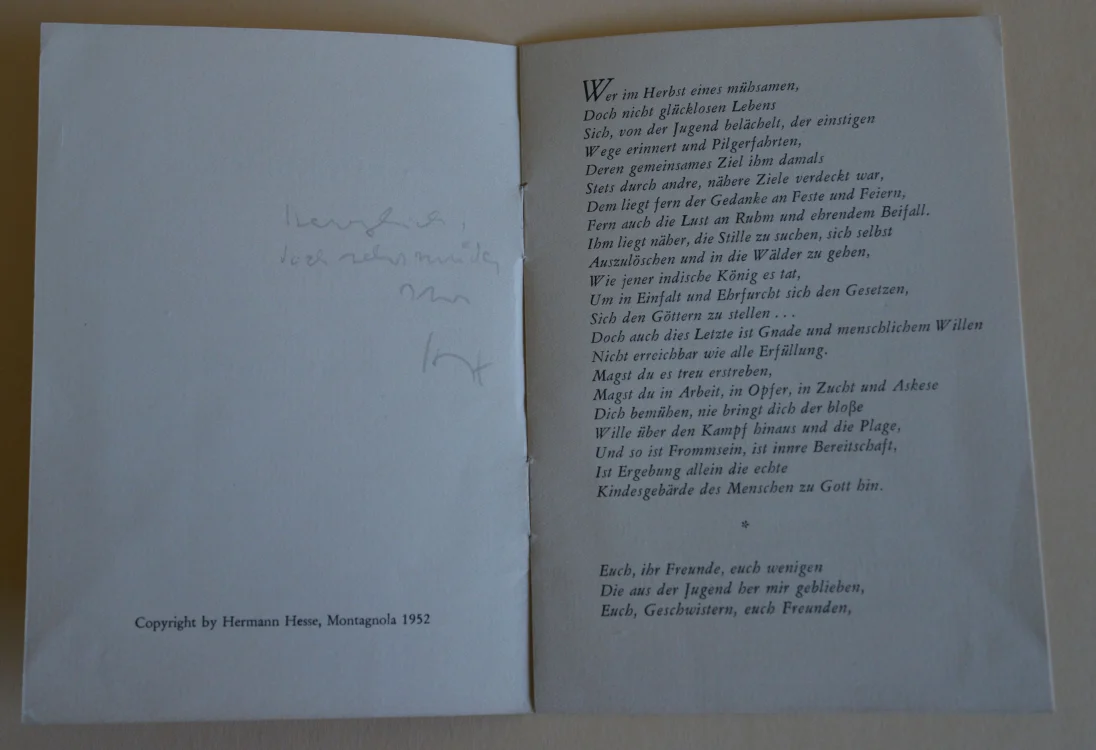 Herzlich,
doch sehr müde,
Copyright by Hermann Hesse, Montagnola 1952
Wer im Herbst eines mühsamen,
Doch nicht glücklosen Lebens
Sich, von der Jugend belächelt, der einstigen
Wege erinnert und Pilgerfahrten,
Deren gemeinsames Ziel ihm damals
Stets durch andre, nähere Ziele verdeckt war,
Dem liegt fern der Gedanke an Feste und Feiern,
Fern auch die Lust an Ruhm und ehrendem Beifall.
Ihm liegt näher, die Stille zu suchen, sich selbst
Auszulöschen und in die Wälder zu gehen,
Wie jener indische König es tat,
Um in Einfalt und Ehrfurcht sich den Gesetzen,
Sich den Göttern zu stellen ...
Doch auch dies Letzte ist Gnade und menschlichem Willen
Nicht erreichbar wie alle Erfüllung.
Magst du es treu erstreben,
Magst du in Arbeit, in Opfer, in Zucht und Askese
Dich bemühen, nie bringt dich der bloße
Wille über den Kampf hinaus und die Plage,
Und so ist Frommsein, ist innre Bereitschaft,
Ist Ergebung allein die echte
Kindesgebärde des Menschen zu Gott hin.
*
Euch, ihr Freunde, euch wenigen
Die aus der Jugend her mir geblieben,
Euch, Geschwistern, euch Freunden,